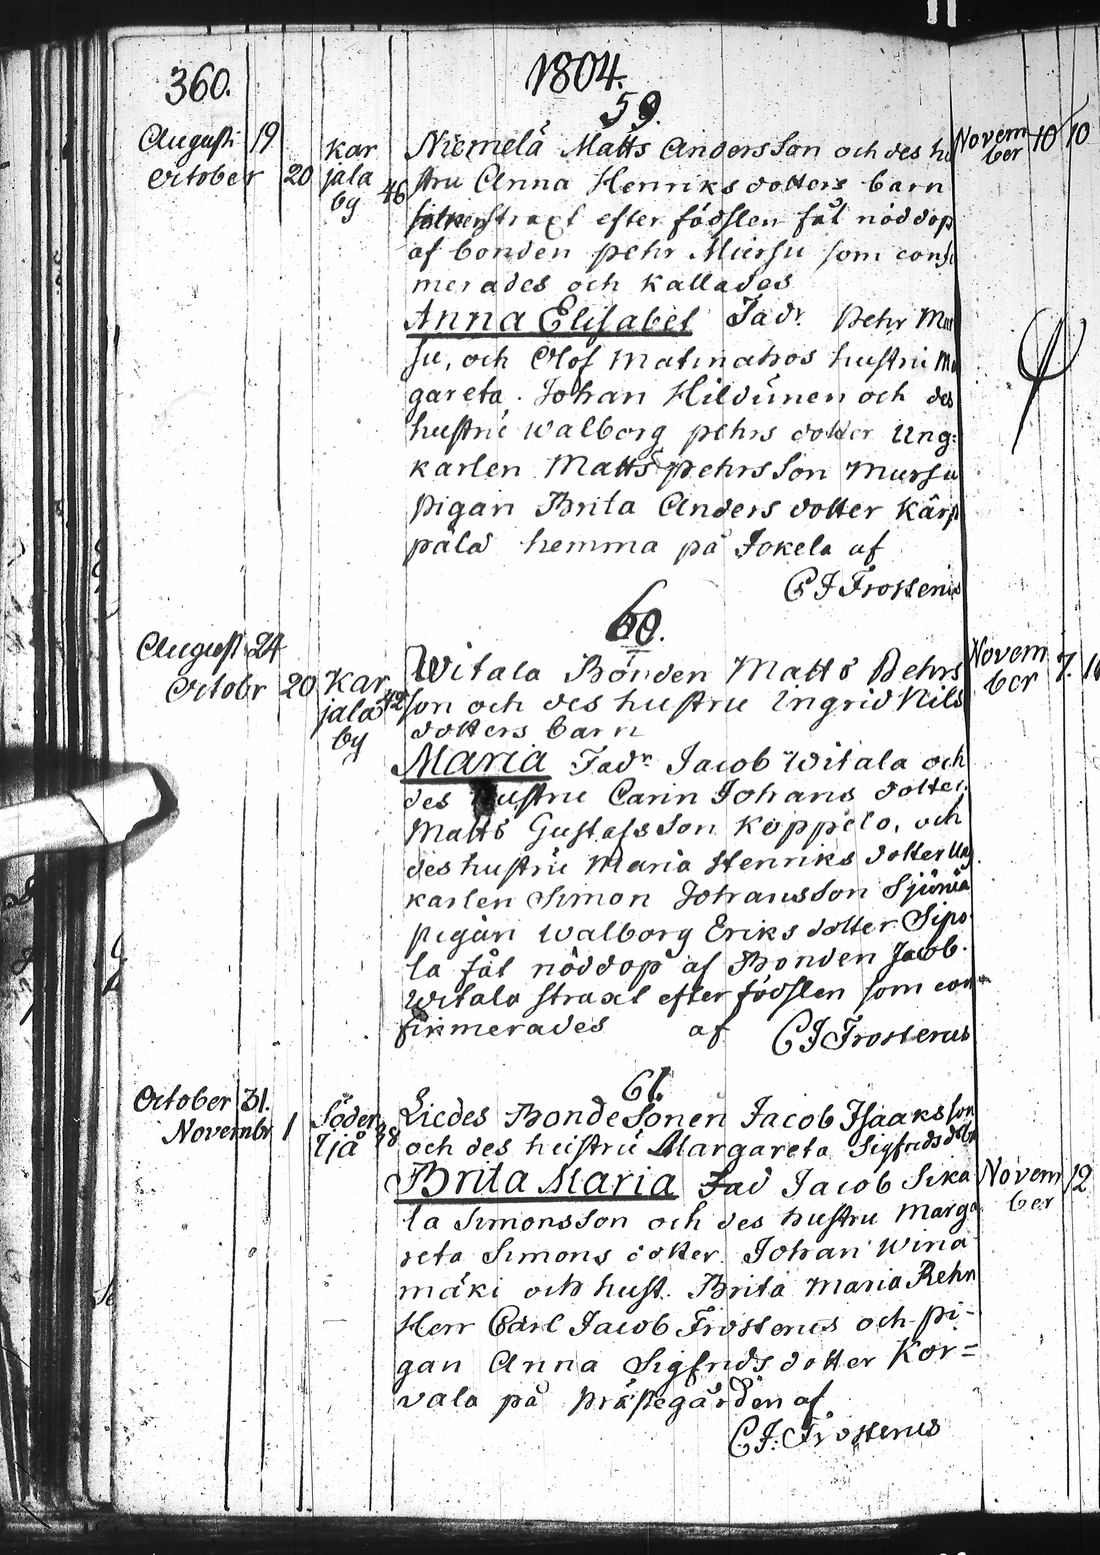 360.
1804.
59.
August 19
October 20
Kar
jala
by
46
Niemelä Matts Andersson och des hu
stru Anna Henriksdotters barn
straxt efter födslen fåt nöddop
af bonden pehr Mursu som confir
merades och kallades
Anna Elisabet Fadr. Pehr Mur
su, och Olof Matinahos hustru Mar
gareta. Johan Hildunen och des
hustru Walborg pehrs dotter Ung:
karlen Matts pehrsson Mursu
pigan Brita Anders dotter Kärp
pälä hemma på Jokela af
C J Frosterus
Novem
ber
10 10
60.
August 24
Octobr 20
Kar
jala
by
42
Witala Bonden Matts Pehrs
son och des hustru Ingrid Nils
dotters barn
Maria Fadr Jacob Witala och
des hustru Carin Johans dotter.
Matts Gustafsson Koppelo, och
des hustru Maria Henriks dotter Ung
karlen Simon Johansson
pigan Walborg Eriks dotter Sipo
la fåt nöddop af Bonden Jacob
Witala straxt efter födslen som con
firmerades af C J Frosterus
Novem
ber
7.
61.
October 31.
Novembr 1
Söder
Ijå
38
Liedes BondeSonen Jacob Isaaksson
och des hustru Margareta Sigfrids dottr
Brita Maria Fad Jacob Sika
la Simonsson och des hustru Marga
reta Simons dotter Johan Wina
mäki och hust. Brita Maria Rehn
Herr Carl Jacob Frosterus och pi-
gan Anna Sigfrids dotter Kor=
vala på Prästegården af
C J: Frosterus
Novem
ber
12